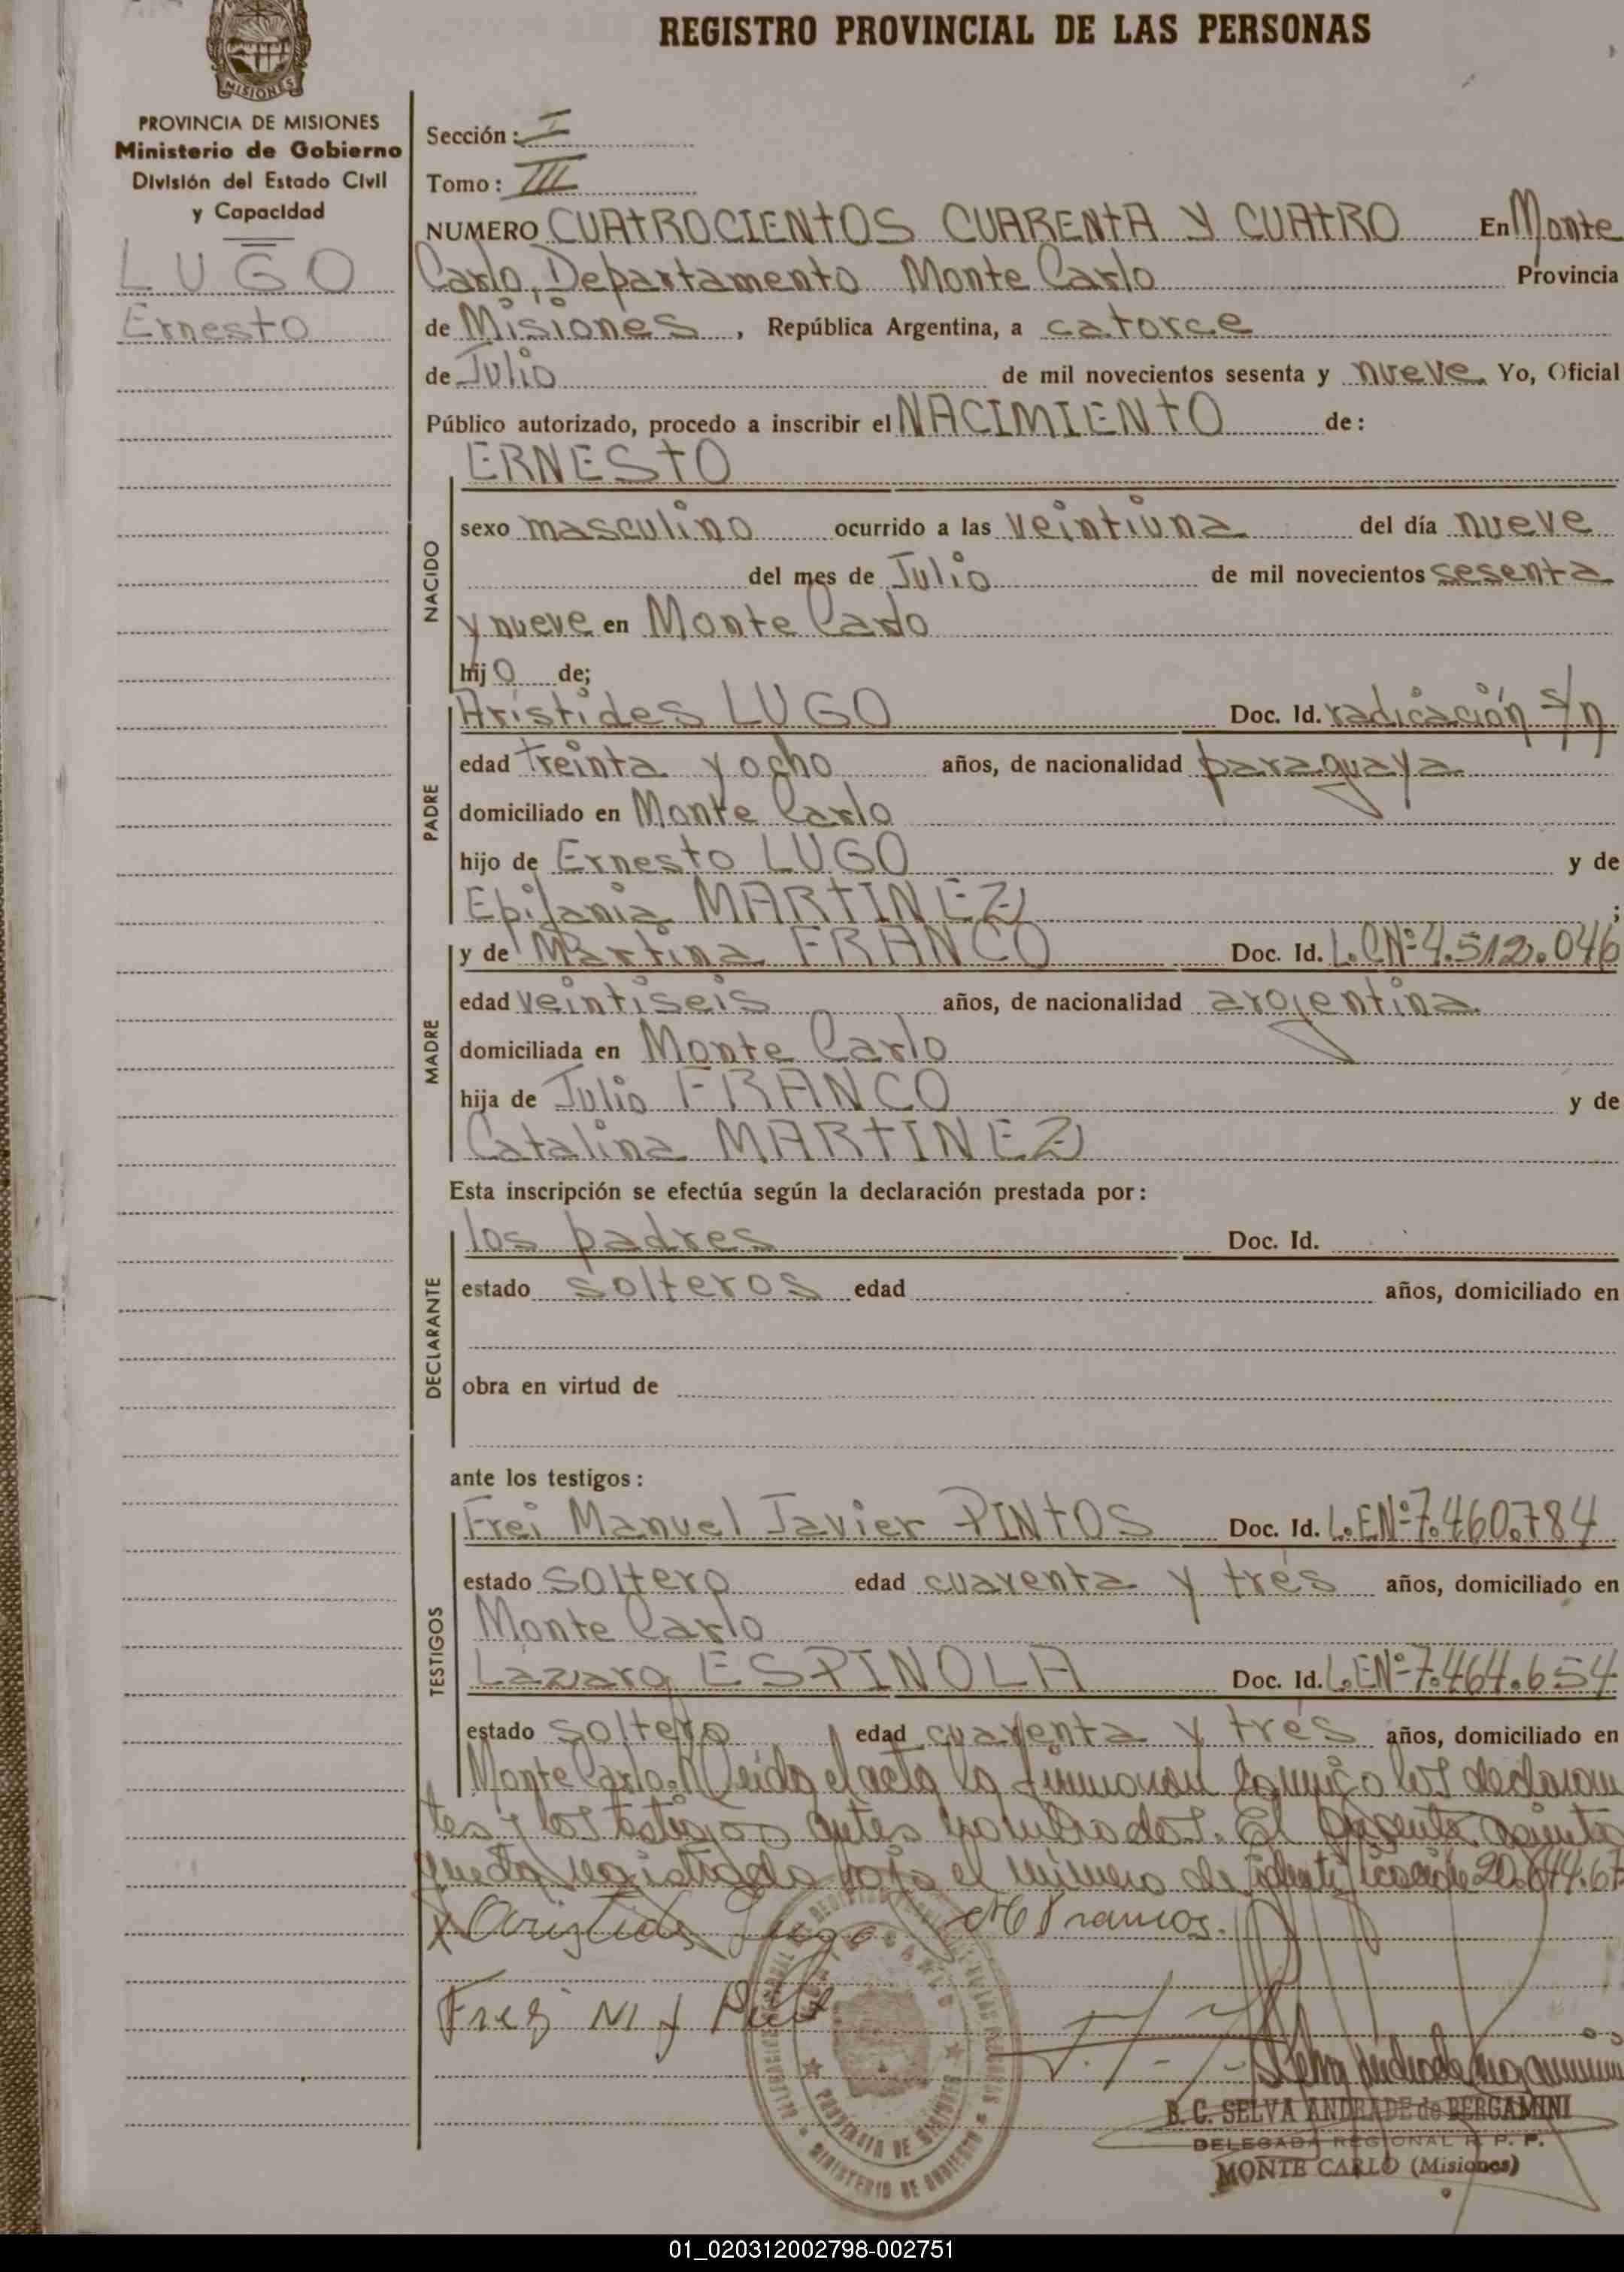 REGISTRO PROVINCIAL DE LAS PERSONAS
MISIONES
PROVINCIA DE MISIONES
Ministerio de Gobierno
División del Estado Civil
y Capacidad
LUGO
Ernesto
Sección: I
Tomo: III
NUMERO CUATROCIENTOS CUARENTA Y CUATRO En Monte
Carlo, Departamento Monte Carlo Provincia
de Misiones, República Argentina, a catorce
de Julio de mil novecientos sesenta y nueve. Yo, Oficial
Público autorizado, procedo a inscribir el NACIMIENTO de:
NACIDO
ERNESTO
sexo masculino ocurrido a las veintiuna del día nueve
del mes de Julio de mil novecientos sesenta
y nueve en Monte Carlo
hijo de;
PADRE
Arístides LUGO Doc. Id. radicación s/n
edad treinta y ocho años, de nacionalidad paraguaya
domiciliado en Monte Carlo
hijo de Ernesto LUGO y de
Epifania MARTINEZ ;
MADRE
y de Martina FRANCO Doc. Id. L.C Nº 4.512.046
edad veintiseis años, de nacionalidad argentina
domiciliada en Monte Carlo
hija de Julio FRANCO y de
Catalina MARTINEZ
Esta inscripción se efectúa según la declaración prestada por:
DECLARANTE
los padres Doc. Id.
estado solteros edad años, domiciliado en
obra en virtud de
ante los testigos:
TESTIGOS
Frei Manuel Javier PINTOS Doc. Id. L.E Nº 7.460.784
estado soltero edad cuarenta y trés años, domiciliado en
Monte Carlo
Lázaro ESPINOLA Doc. Id. L.E Nº 7.464.654
estado soltero edad cuarenta y trés años, domiciliado en
Monte Carlo.- Leida el acta la firmaron conmigo los declaran
tes y los testigos antes nombrados. El presente asiento
queda registrado bajo el número de identificación
Aristides Lugo
B. C. SELVA ANDRADE de BERGAMINI
DELEGADA REGIONAL R. P. P.
MONTE CARLO (Misiones)
PROVINCIA DE MISIONES
MINISTERIO DE GOBIERNO
01_020312002798-002751